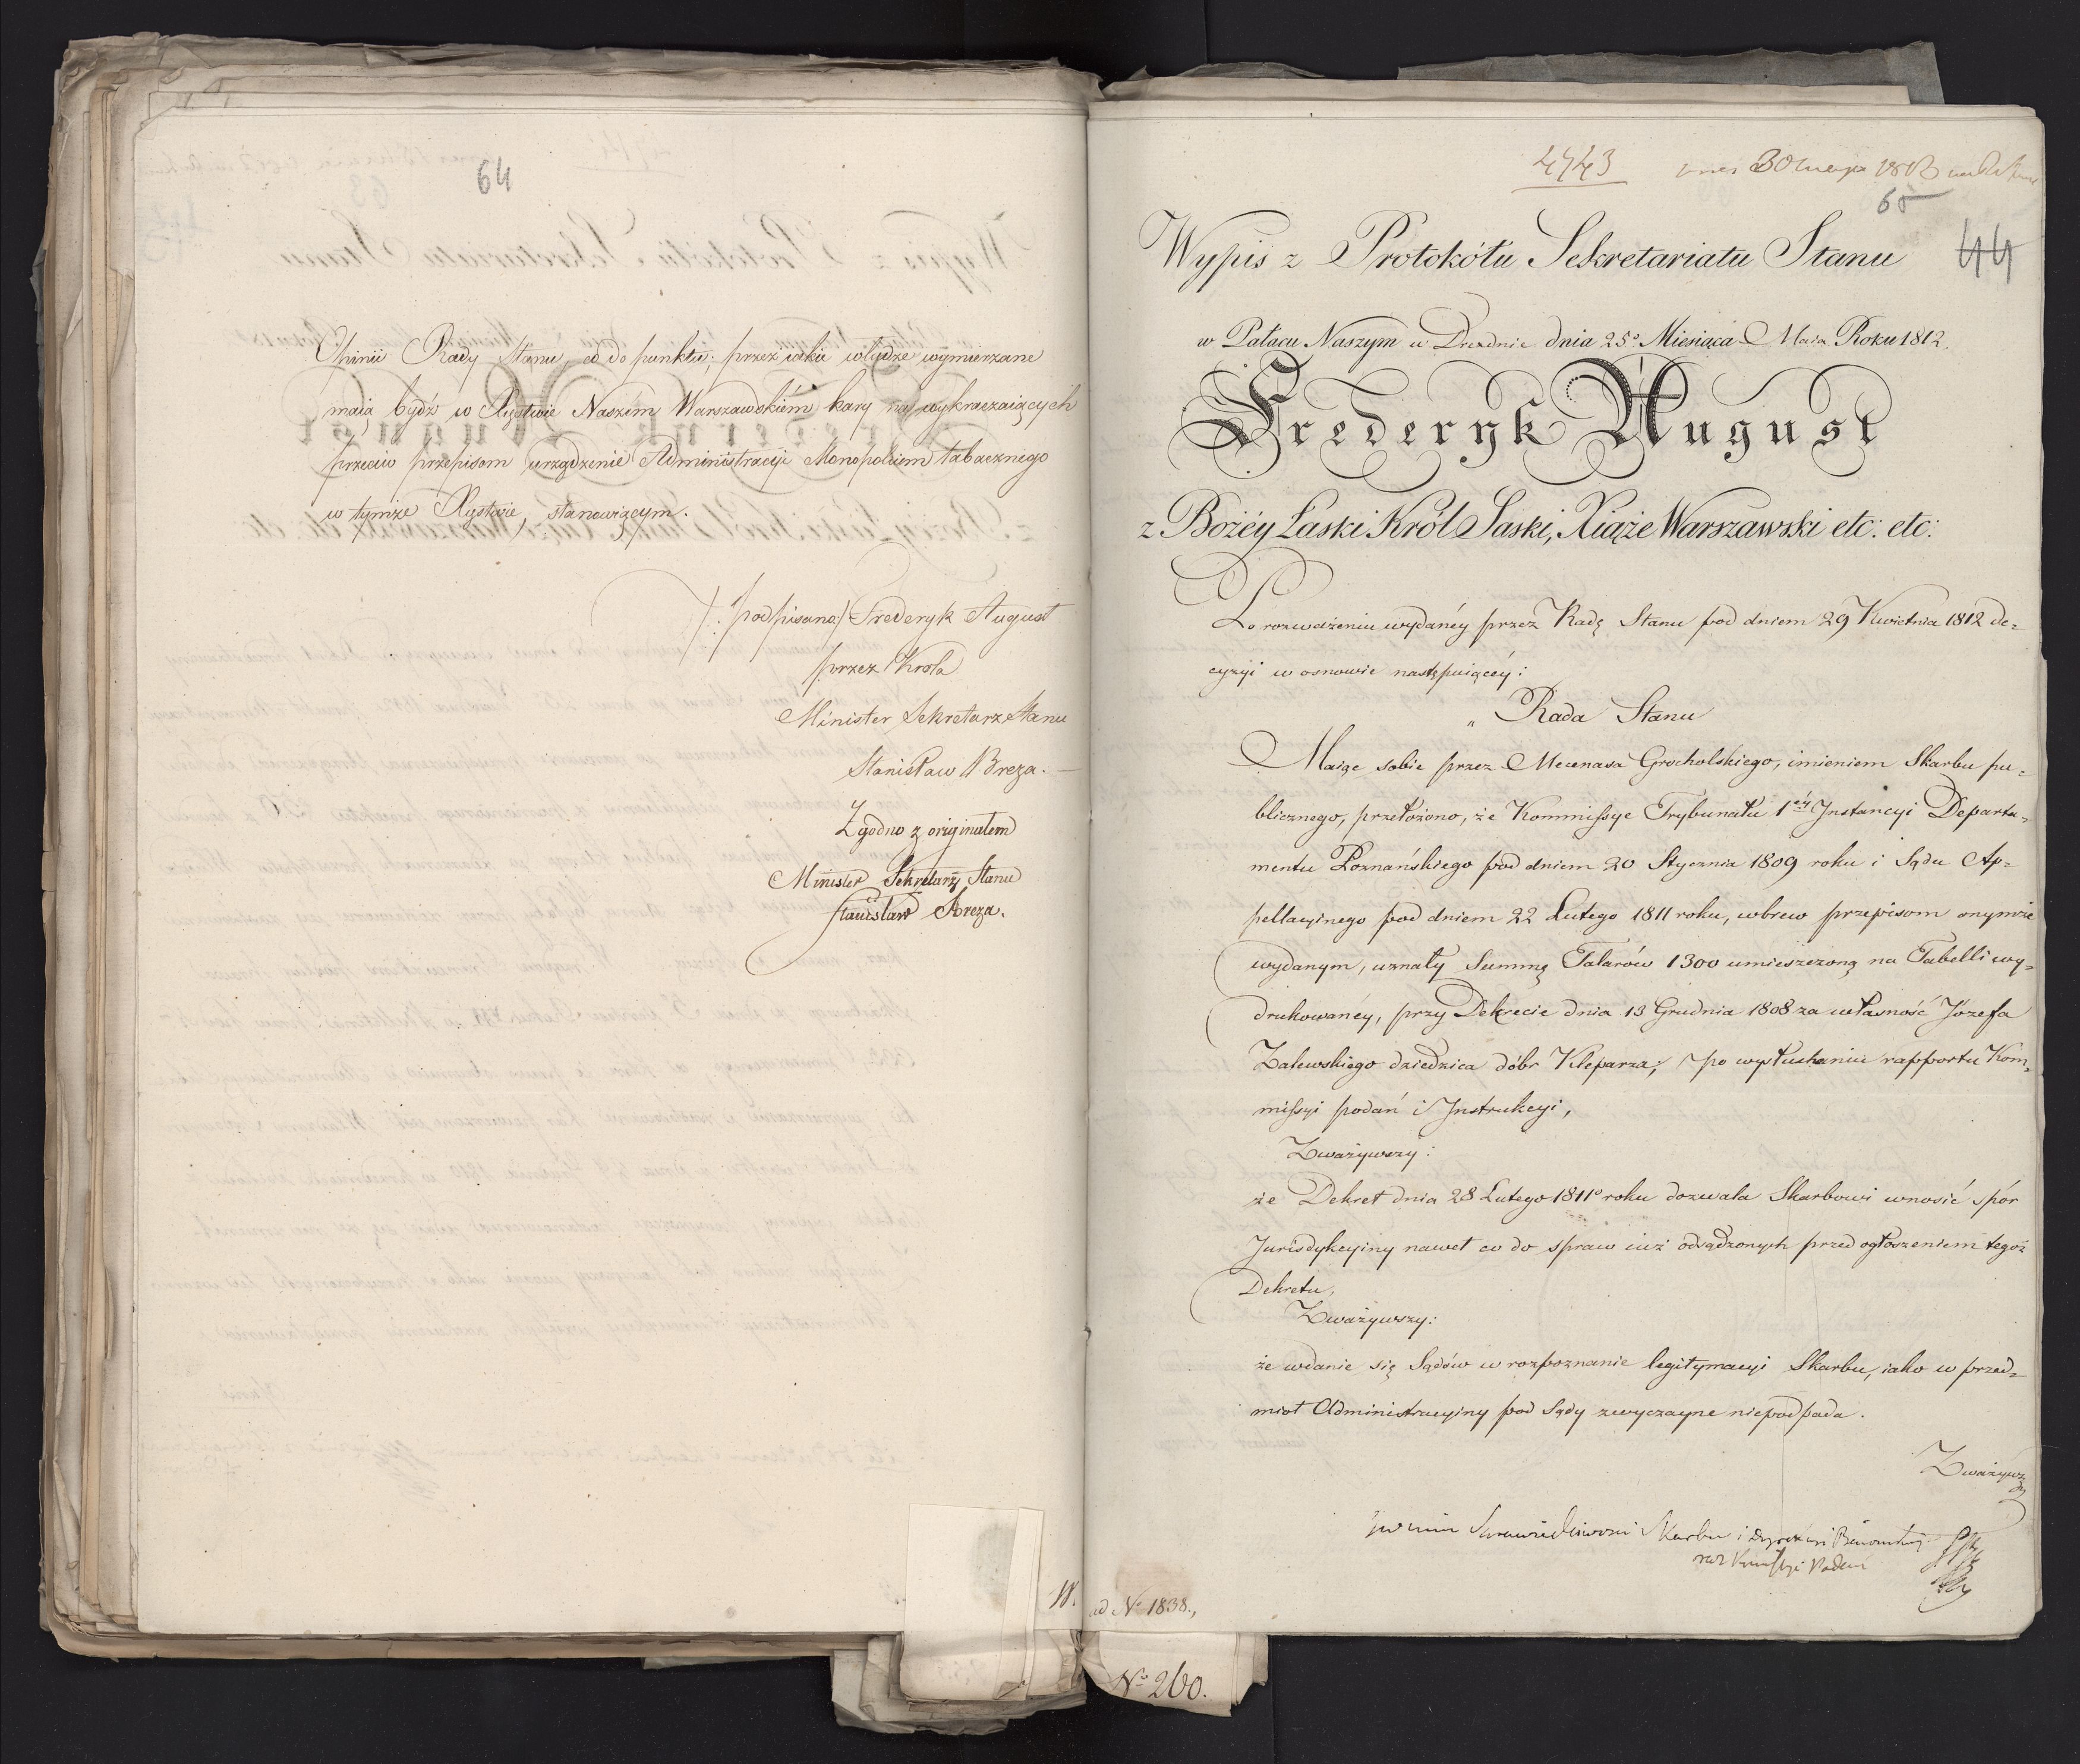 64
Opinii Rady Stanu, co do punktu; przez iakie władze wymierzane
maią bydź w Xięstwie Naszem Warszawskiém kary na wykraczaiących
przeciw przepisom urządzenie Administracyi Monopolium tabacznego
w tymże Xięstwie, stanowiącym.
/: podpisano:/ Frederyk August
przez Króla
Minister Sekretarz Stanu
Stanisław Breza.
Zgodno z originałem
Minister Sekretarz Stanu
Stanisław Breza.
W.
4743 30 maja 1812
65
44
Wypis z Protokółu Sekretariatu Stanu
w Pałacu Naszym w Dreznie dnia 25o Miesiąca Maia Roku 1812.
Frederyk August
z Bożéy Łaski Król Saski, Xiąże Warszawski etc: etc:
Po rozważeniu wydanéy przez Radę Stanu pod dniem 29 Kwietnia 1812 de=
cyzyi w osnowie następuiącéy:
„ Rada Stanu
Maiąc sobie przez Mecenasa Grocholskiego, imieniem Skarbu pu=
blicznego, przełożono, że Kommissye Trybunału 1éy Jnstancyi Departa=
mentu Poznańskiego pod dniem 20 Stycznia 1809 roku i Sądu Ap=
pellacyinego pod dniem 22 Lutego 1811 roku, wbrew przepisom onymże
wydanym, uznały Summę Talarów 1300 umieszczoną na Tabelli wy=
drukowanéy, przy Dekrecie dnia 13 Grudnia 1808 za własność Józefa
Zalewskiego dziedzica dóbr Kleparza; po wysłuchaniu rapportu Kom=
missyi podań i Jnstrukcyi,
Zważywszy:
że Dekret dnia 28 Lutego 1811o roku dozwala Skarbowi wnosić spór
Jurisdykcyiny nawet co do spraw iuż odsądzonych przed ogłoszeniem tegoż
Dekretu,
Zważywszy:
że wdanie się Sądów w rozpoznanie legitymacyi Skarbu, iako w przed=
miot Administracyiny pod Sądy zwyczayne niepodpada.
Zważywszy
Sprawiedliwości Skarbu i
ad No 1838.,
No 260.